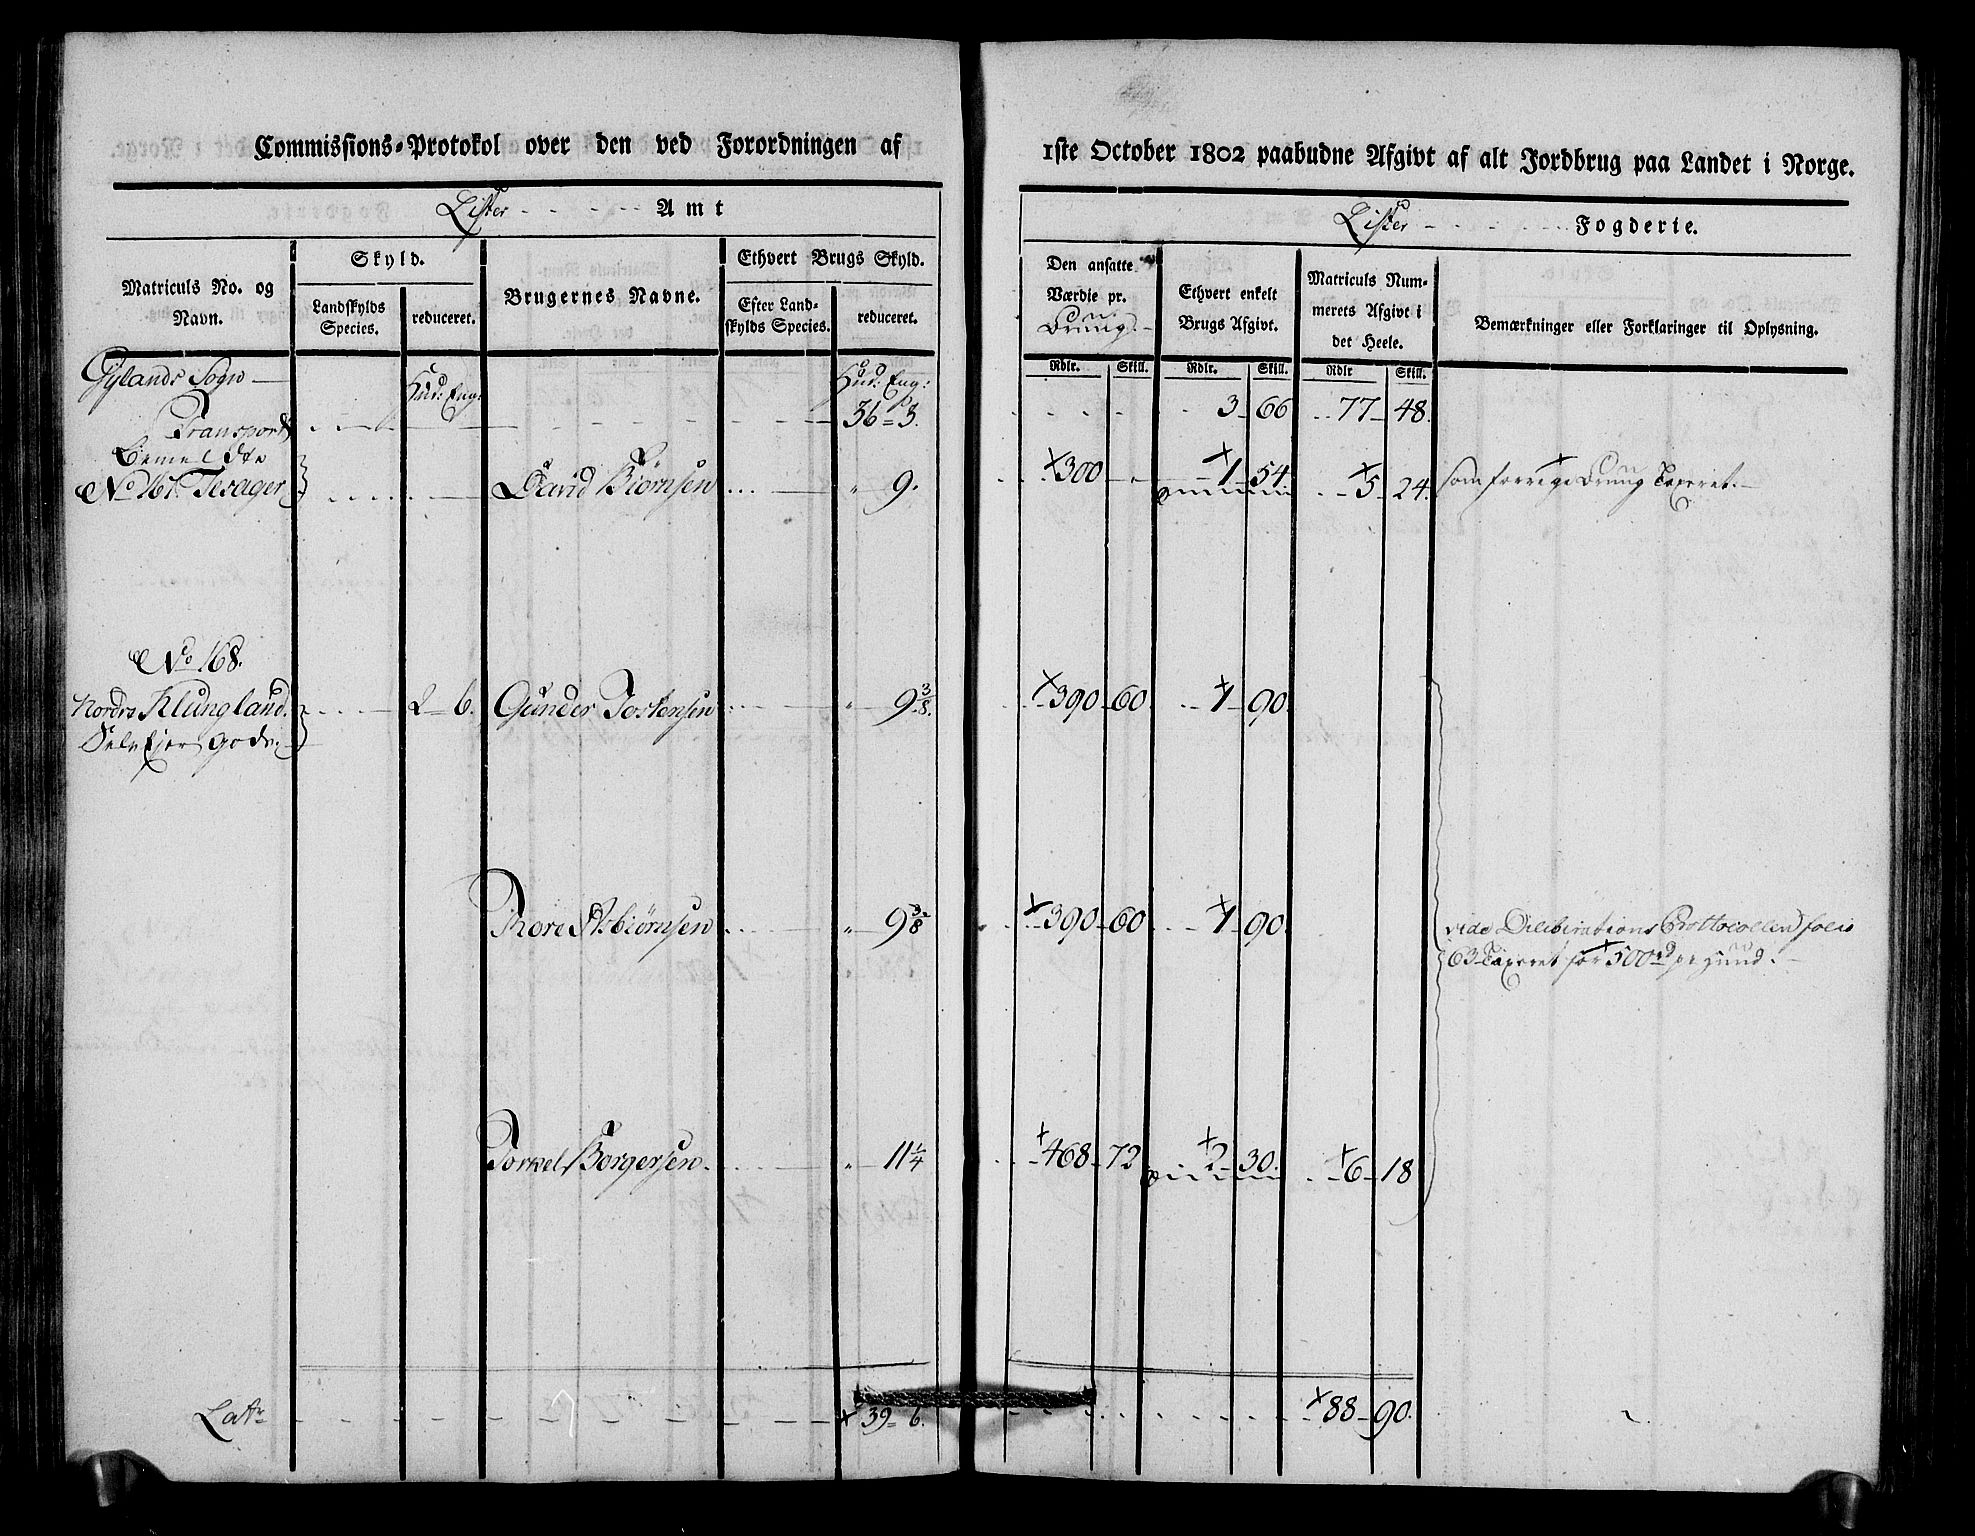 Commissions-Protokol over den ved Forordningen af
1ste October 1802 paabudne Afgivt af alt Jordbrug paa Landet i Norge.
Lister - - - - - Amt
Lister - - - - - Fogderie.
Matriculs No. og Navn.
Skyld.
Landskylds Species.
reduceret.
Brugernes Navne.
Ethvert Brugs Skyld.
Efter Landskylds Species.
reduceret.
Den ansatte Værdie pr. Brug.
Ethvert enkelt Brugs Afgivt.
Matriculs Nummerets Afgivt i det Heele.
Bemærkninger eller Forklaringer til Oplysning.
Rdlr. Skill. Rdlr. Skill. Rdlr Skill.
Gylands Sogn
Hud: Eng:
Hud: Eng:
Transport
36 = 3.
3 66 77 48.
bemeldte
No 167. Tesager
David Biørnsen
" 9.
+300 - +1 54. +5 24.
som forrige Brug Taxeret.
No 168.
Nordre Klungland.
Selvejer gods.
2 6.
Gunder Jostensen
" 9 3/8.
+390 60. +1 90.
Thore Asbiørnsen
" 9 3/8
+390 60 +1 90.
vide Deliberations Prottocollen folio
63 Taxeret for +500rd pr Huud.
Torkel Borgersen.
" 11 1/4
+468 72 +2 30. +6 18
Latr
+ 39 6.
+88 90.